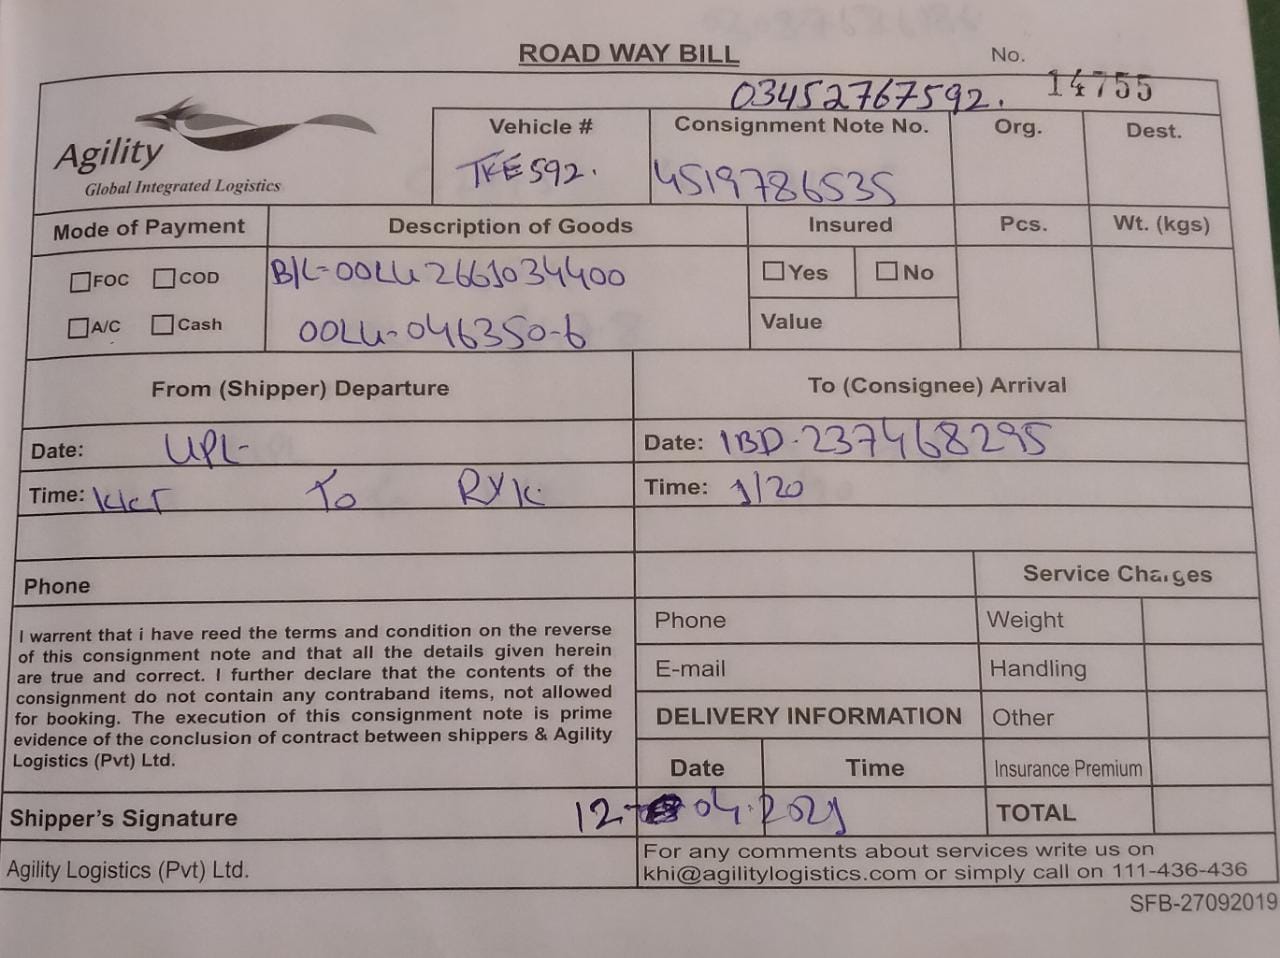 ROAD WAY BILL
No. 14755
03452767592.
Agility
Global Integrated Logistics
Vehicle # Consignment Note No. Org. Dest.
TKE592. 4519786535
Mode of Payment Description of Goods Insured Pcs. Wt. (kgs)
FOC COD B/L-OOLU2661034400 Yes No
A/C Cash OOLU-046350-6 Value
From (Shipper) Departure To (Consignee) Arrival
Date: UPL- Date: IBD-237468295
Time: KICT To RYK. Time: 1/20
Phone Service Charges
I warrent that i have reed the terms and condition on the reverse
of this consignment note and that all the details given herein
are true and correct. I further declare that the contents of the
consignment do not contain any contraband items, not allowed
for booking. The execution of this consignment note is prime
evidence of the conclusion of contract between shippers & Agility
Logistics (Pvt) Ltd.
Phone Weight
E-mail Handling
DELIVERY INFORMATION Other
Date Time Insurance Premium
Shipper's Signature 12- 04.2021 TOTAL
Agility Logistics (Pvt) Ltd. For any comments about services write us on
khi@agilitylogistics.com or simply call on 111-436-436
SFB-27092019